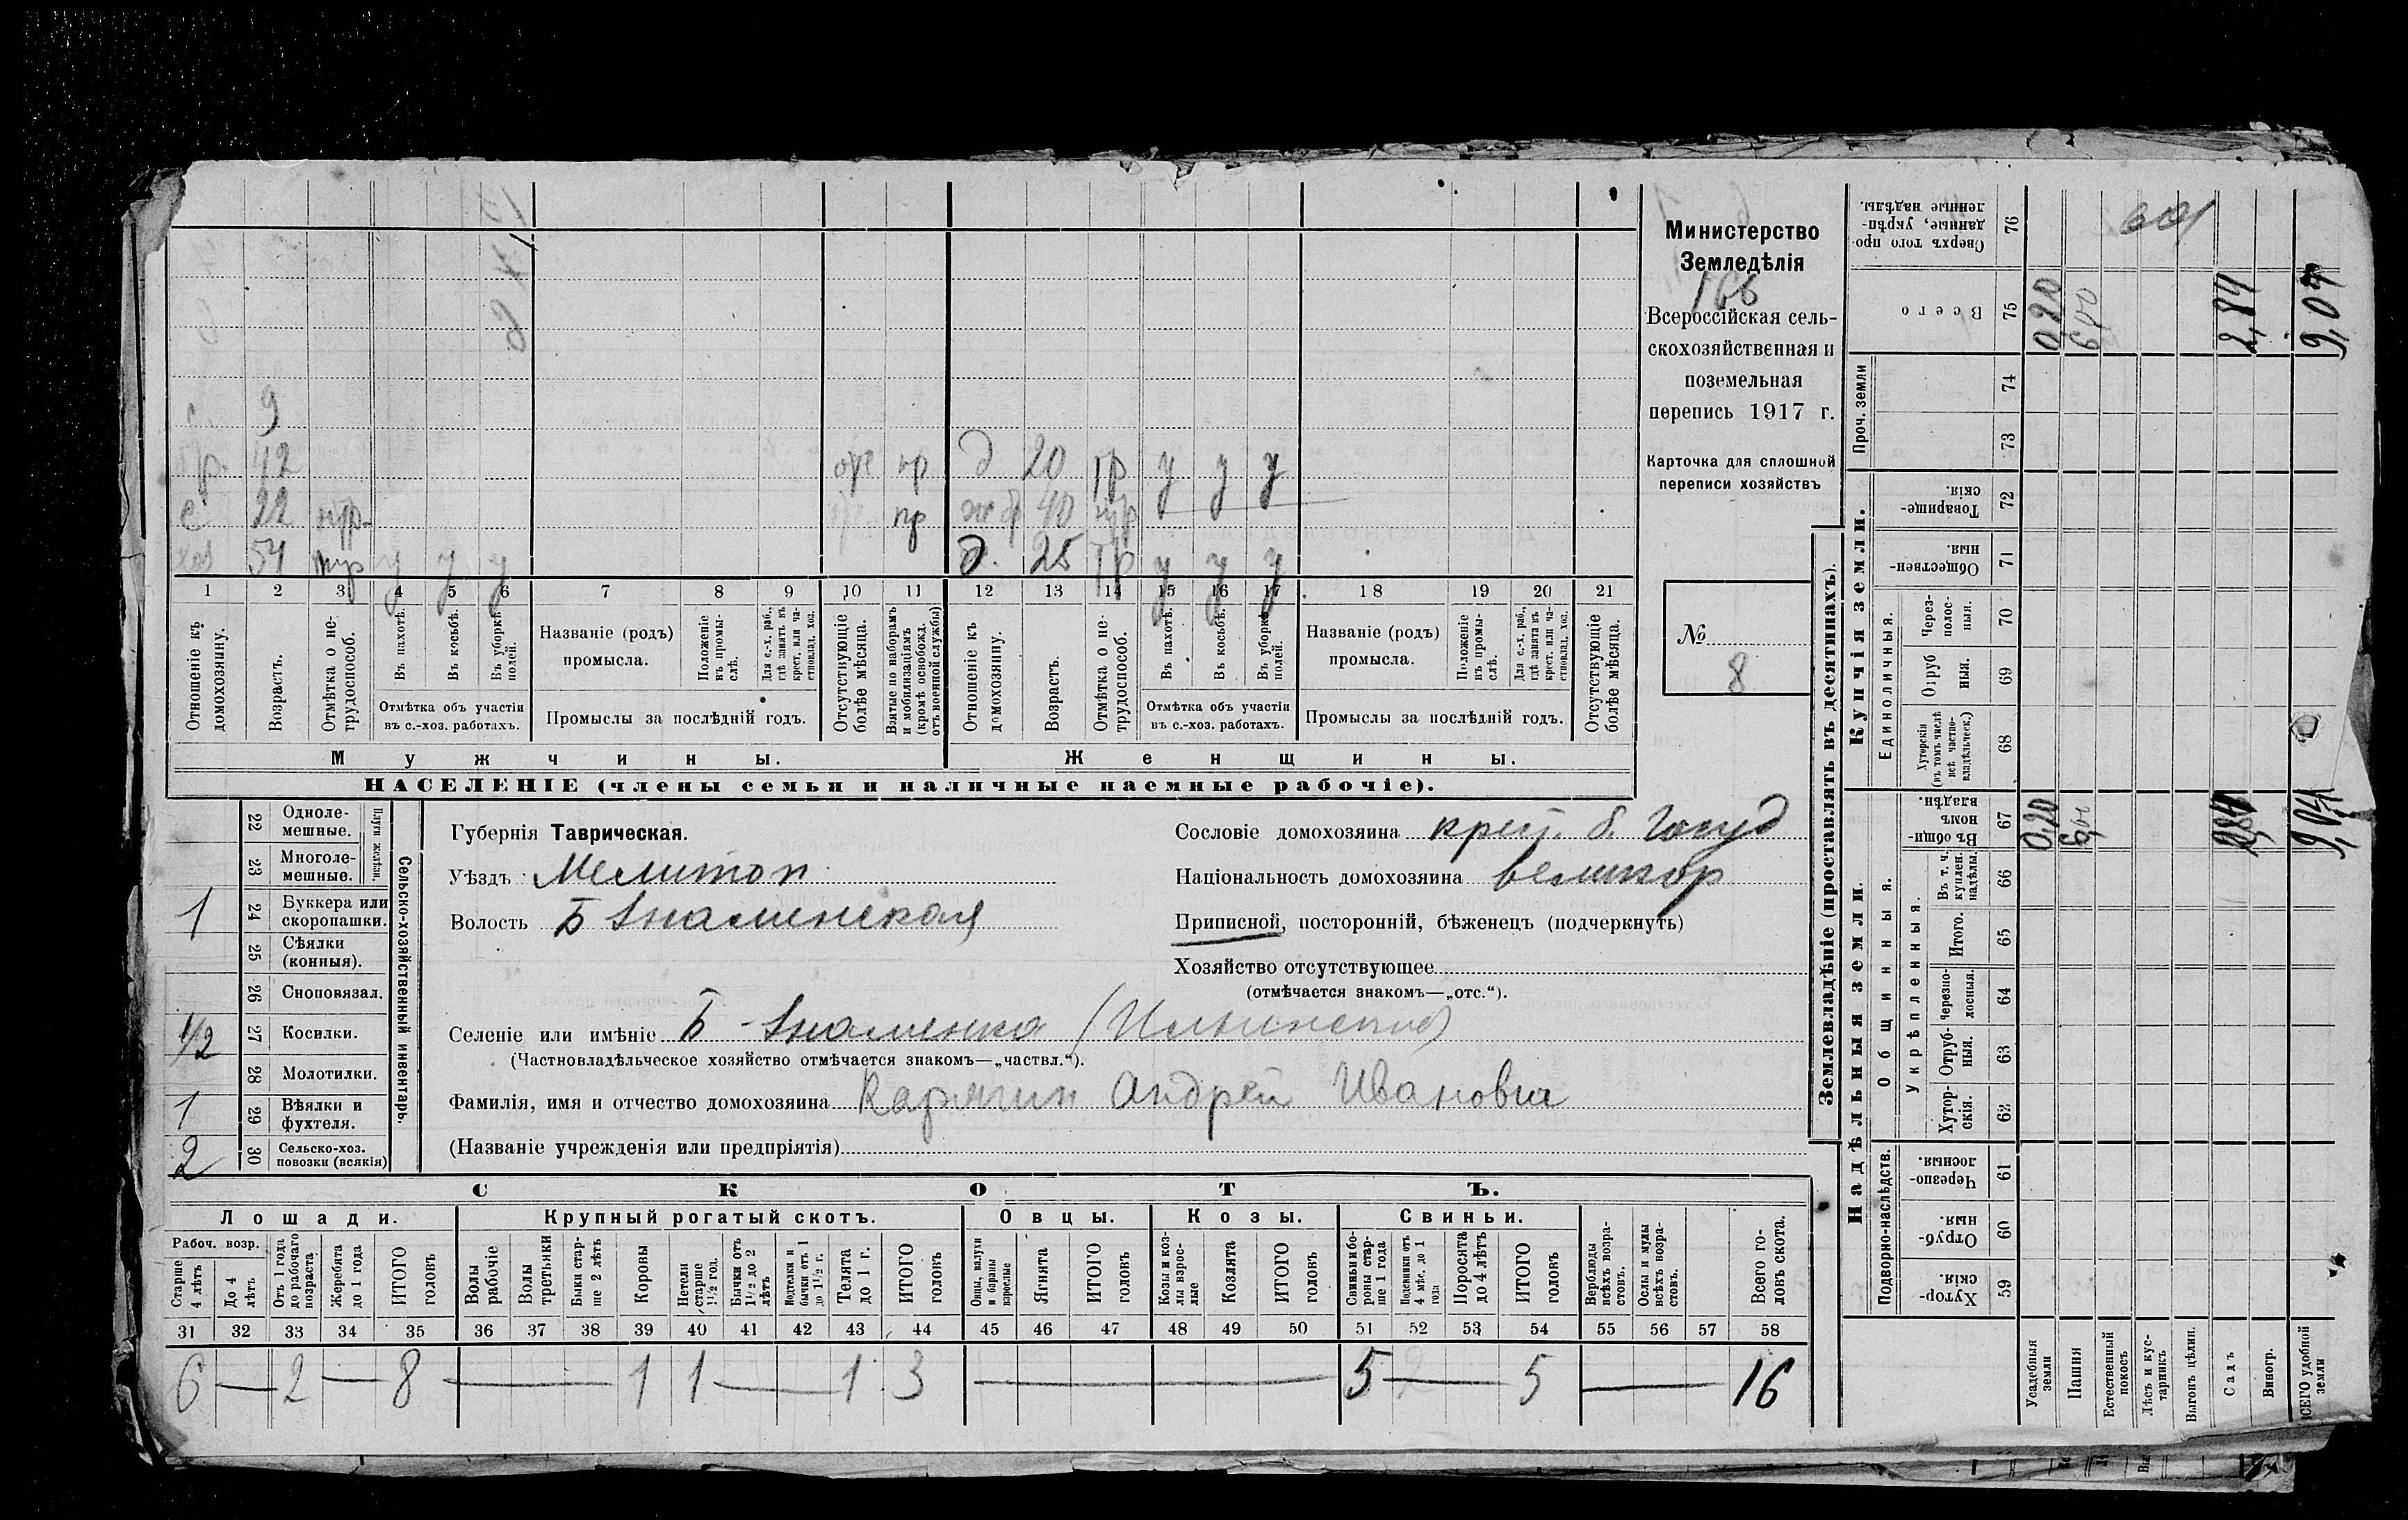 Министерство
Земледѣлія
166
Всероссійская сель-
скохозяйственная и
поземельная
перепись 1917 г.
Карточка для сплошной
переписи хозяйствъ
№
8
9
42 пр д 20 тр у у у
с 22 пр 40
хоз 54 у у у д. 25 тр у у у
1 2 3 4 5 6 7 8 9 10 11 12 13 14 15 16 17 18 19 20 21
Отношеніе къ домохозяину.
Возрастъ.
Отмѣтка о не-трудоспособ.
Въ пахотѣ.
Въ косьбѣ.
Въ уборкѣ полей.
Отмѣтка объ участіи
въ с.-хоз. работахъ.
Названіе (родъ)
промысла.
Положеніе въ промы-слѣ.
Для с.-х. раб., гдѣ занятъ въ крест. или ча-стновлад. хоз.
Промыслы за послѣдній годъ.
Отсутствующіе болѣе мѣсяца.
Взятые по наборамъ и мобилизаціямъ (кромѣ освобожд. отъ военной службы)
Отношеніе къ домохозяину.
Возрастъ.
Отмѣтка о не-трудоспособ.
Въ пахотѣ.
Въ косьбѣ.
Въ уборкѣ полей.
Отмѣтка объ участіи
въ с.-хоз. работахъ.
Названіе (родъ)
промысла.
Положеніе въ промы-слѣ.
Для с.-х. раб., гдѣ занята въ крест. или ча-стновлад. хоз.
Промыслы за послѣдній годъ.
Отсутствующіе болѣе мѣсяца.
Мужчины. Женщины.
НАСЕЛЕНІЕ (члены семьи и наличные наемные рабочіе).
Сельско-хозяйственный инвентарь.
Плуги желѣзн.
22 Одноле-мешные.
23 Многоле-мешные.
1 24 Буккера или скоропашки.
25 Сѣялки (конныя).
26 Сноповязал.
1/2 27 Косилки.
28 Молотилки.
1 29 Вѣялки и фухтеля.
2 30 Сельско-хоз. повозки (всякія)
Губернія Таврическая.
Уѣздъ Мелитоп
Волость Б Знаменская
Сословіе домохозяина крест. б. Госуд
Національность домохозяина великор
Приписной, посторонній, бѣженецъ (подчеркнуть)
Хозяйство отсутствующее
(отмѣчается знакомъ—„отс.“).
Селеніе или имѣніе Б-Знаменка (Ильинская)
(Частновладѣльческое хозяйство отмѣчается знакомъ—„частвл.“).
Фамилія, имя и отчество домохозяина Карягин Андрей Иванович
(Названіе учрежденія или предпріятія)
СКОТЪ.
Лошади. Крупный рогатый скотъ. Овцы. Козы. Свиньи.
Рабоч. возр.
Старше 4 лѣтъ
До 4 лѣтъ
Отъ 1 года до рабочаго возраста
Жеребята до 1 года
ИТОГО головъ
Волы рабочіе
Волы третьяки
Быки стар-ше 2 лѣтъ
Коровы
Нетели старше 1½ год.
Бычки отъ 1½ до 2 лѣтъ
Подтелки и бычки отъ 1 до 1½ г.
Телята до 1 г.
ИТОГО головъ
Овцы, валухи и бараны взрослые
Ягнята
ИТОГО головъ
Козы и коз-лы взрос-лые
Козлята
ИТОГО головъ
Свиньи и бо-ровы стар-ше 1 года
Подсвинки отъ 4 мѣс. до 1 года
Поросята до 4 лѣтъ
ИТОГО головъ
Верблюды всѣхъ возра-стовъ.
Ослы и мулы всѣхъ возра-стовъ.
Всего го-ловъ скота.
31 32 33 34 35 36 37 38 39 40 41 42 43 44 45 46 47 48 49 50 51 52 53 54 55 56 57 58
6 — 2 — 8 — 1 1 — 1 3 — 5 2 — 5 — 16
Землевладѣніе (проставлять въ десятинахъ).
Надѣльныя земли. Купчія земли. Проч. земли
Подворно-наслѣдств.
Общинныя.
Укрѣпленныя.
Единоличныя.
Хутор-скія. 59
Отруб-ныя. 60
Черезпо-лосныя. 61
Хутор-скія. 62
Отруб-ныя. 63
Черезпо-лосныя. 64
Итого. 65
Въ т. ч. куплен. надѣлы. 66
Въ общи-номъ владѣн. 67
Хуторскія (въ томъ числѣ всѣ частно-владѣльческ.) 68
Отруб ныя. 69
Через-полос-ныя. 70
Обществен-ныя. 71
Товарище-скія. 72
73
74
Всего 75
Сверхъ того про-данные, укрѣп-ленные надѣлы. 76
Усадебныя земли 0,20 0,20
Пашня 6,00 600
Естественный покосъ
Лѣсъ и кус-тарникъ
Выгонъ цѣлин.
Садъ 2,84 2,84
Виногр.
ВСЕГО удобной земли 9,04 9,04